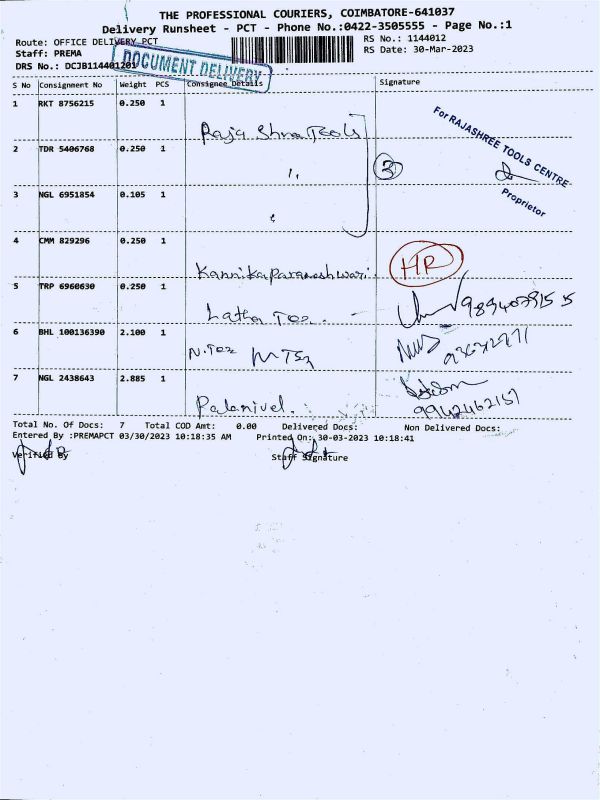 THE PROFESSIONAL COURIERS, COIMBATORE-641037
Delivery Runsheet - PCT - Phone No.:0422-3505555 - Page No.:1
Route: OFFICE DELIVERY PCT
RS No.: 1144012
Staff: PREMA
RS Date: 30-Mar-2023
DRS No.: DCJB114401201
DOCUMENT DELIVERY
S No Consignment No Weight PCS Consignee Details Signature
1 RKT 8756215 0.250 1
Raja Shree Tools
For RAJASHREE TOOLS CENTRE
Proprietor
2 TDR 5406768 0.250 1
"
3
3 NGL 6951854 0.105 1
4 CMM 829296 0.250 1
Kannikaparameshwari
HR
5 TRP 6960630 0.250 1
Latha Tex
6 BHL 100136390 2.100 1
N.Tex
7 NGL 2438643 2.885 1
Palanivel.
9942462157
Total No. Of Docs: 7 Total COD Amt: 0.00 Delivered Docs: Non Delivered Docs:
Entered By :PREMAPCT 03/30/2023 10:18:35 AM Printed On: 30-03-2023 10:18:41
Verified By Staff Signature